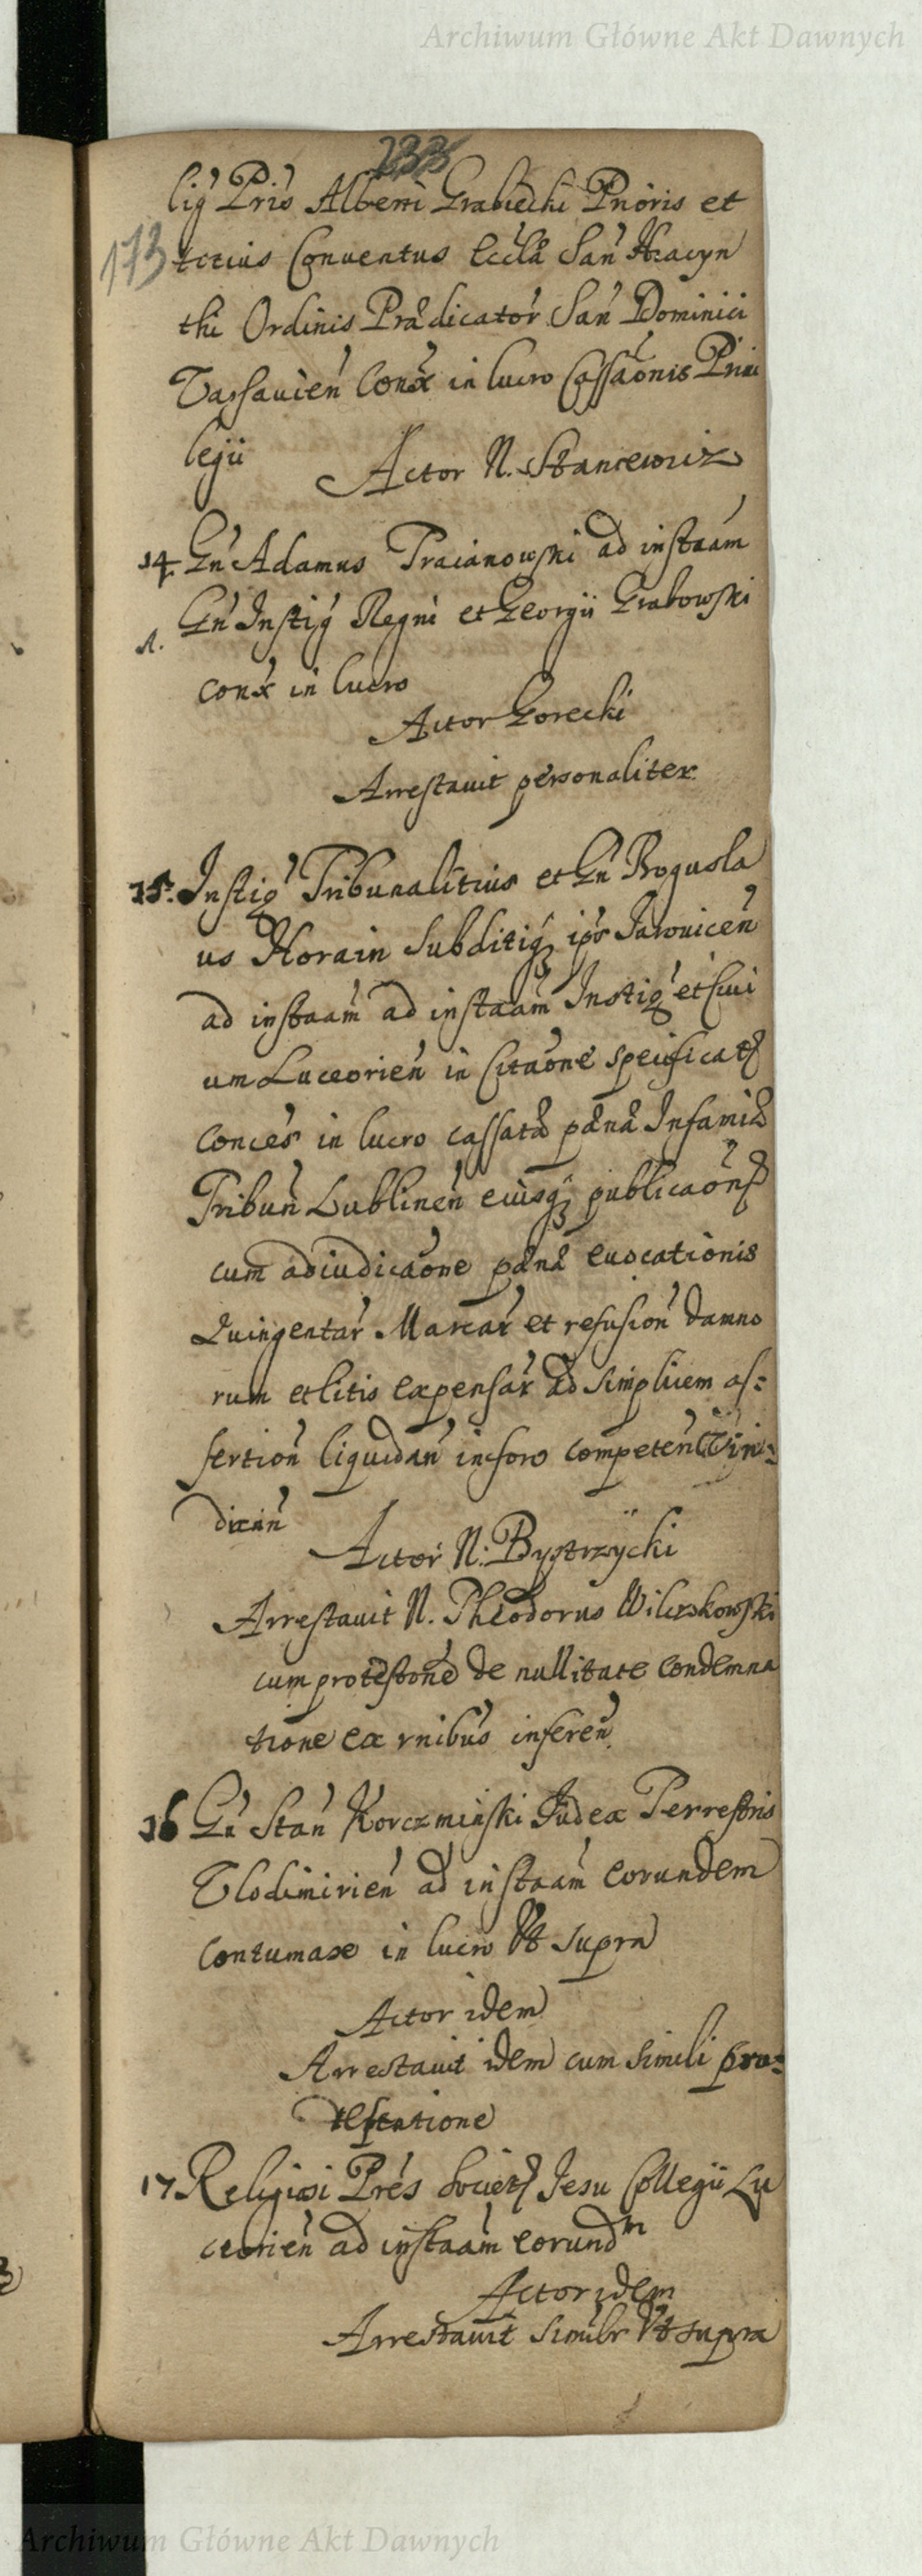 Archiwum Główne Akt Dawnych
233
lig Pris Alberti Grabiecki Prioris et
173 totius Conventus Eccla San Hiacyn
thi Ordinis Prædicator San Dominici
Varsavien Conx in lucro Cassaonis Privi
legii
Actor N. Stancewicz
14. Gn Adamus Traianowski ad instaam
Gn Instig Regni et Georgii Grabowski
A.
conx in lucro
Actor Gorecki
Arrestavit personaliter
15. Instig Tribunalitius et Gn Bogusla
us Horain Subditiq ips Jarovicen
ad instaam ad instaam Instig et Civi
um Luceorien in Citaone specificat
Conces in lucro cassatæ pænæ Infamiæ
Tribun Lublinen eiusq publicaonis
cum adiudicaone pænæ evocationis
Quingentar Marcar et refusion damno
rum et litis expensar ad simplicem as=
sertion liquidan in foro competen Vin=
dican
Actor N. Bystrzycki
Arrestavit N. Theodorus Wilczkowski
cum protestone de nullitate Condemna
tione ex rnibus inferen
16 Gn Stan Korczminski Judex Terrestris
Vlodimirien ad instaam eorundem
Contumax in lucro Vt supra
Actor idem
Arrestavit idem cum simili pro=
testatione
17 Religiosi Pres Societ Jesu Collegii Lu
ceorien ad instaam eorundm
Actor idem
Arrestavit similr Vt supra
Archiwum Główne Akt Dawnych